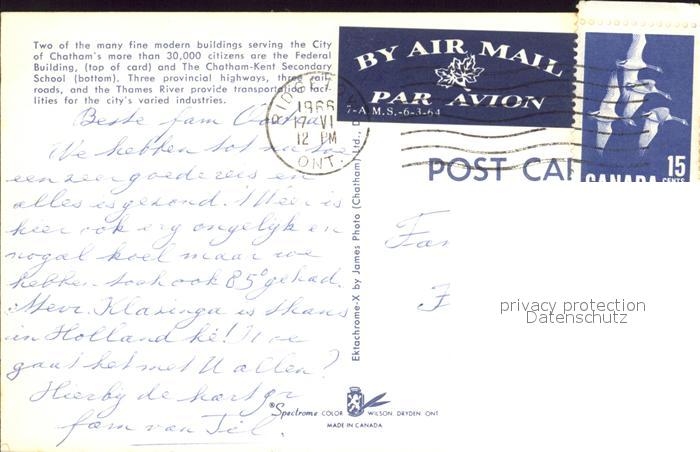 Two of the many fine modern buildings serving the City
of Chatham's more than 30,000 citizens are the Federal
Building, (top of card) and The Chatham-Kent Secondary
School (bottom). Three provincial highways, three rail-
roads, and the Thames River provide transportation faci-
lities for the city's varied industries.
Beste fam
We hebben tot nu toe
een zeer goede reis en
alles is gezond. 't Weer is
hier ook erg ongelyk en
nogal koel maar we
hebben toch ook 85° gehad.
Mevr. Klasinga is thans
in Holland hé! Hoe
gaat het met U allen?
Hierby de hart. gr
fam van Til.
BY AIR MAIL
PAR AVION
7-A.M.S.-6-3-64
1966
17 VI
12 PM
ONT.
15
CENTS
CANADA
POST CAR
Fam
F
privacy protection
Datenschutz
Ektachrome-X by James Photo (Chatham) Ltd.,
Spectrome COLOR WILSON DRYDEN ONT
MADE IN CANADA